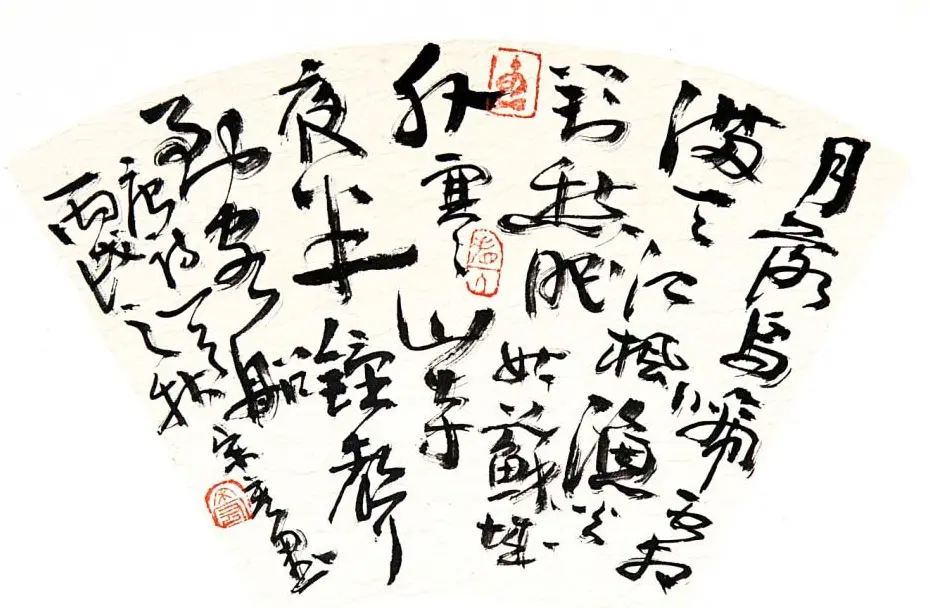 月落烏啼霜
滿天江楓漁火
對愁眠姑蘇城
外寒山寺
夜半鐘聲
到客船
唐诗
丙戌之秋
宋